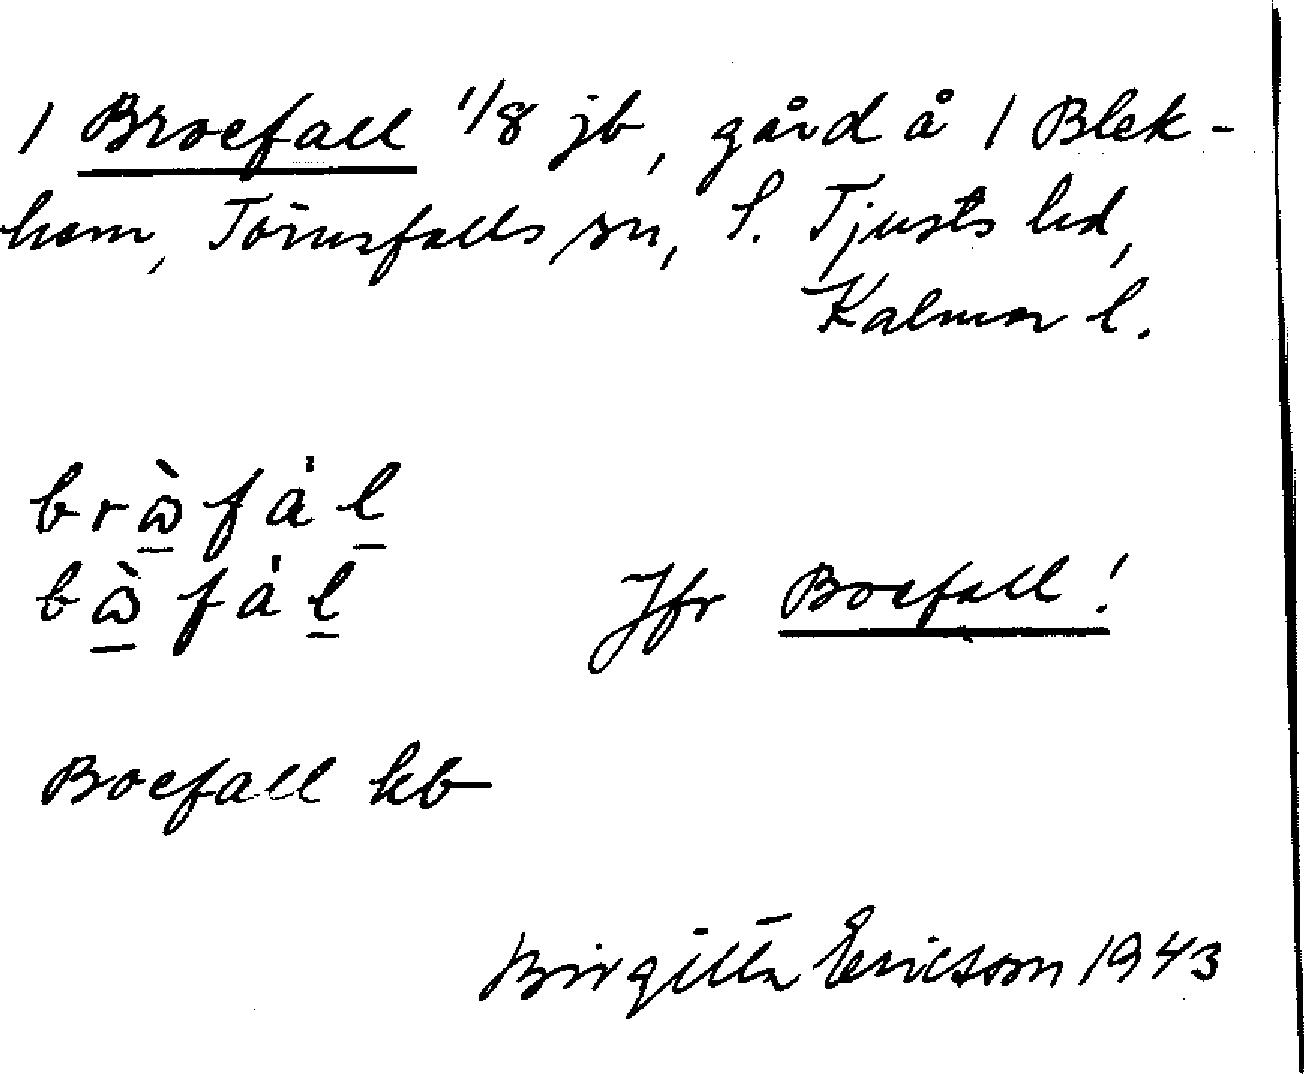 1 Broefall 1/8 jb, gård å 1 Blek-
hem, Törnsfalls sn, S. Tjusts hd,
Kalmar l.
brὼfàl
bὼfàl Jfr Boefall!
Boefall kb
Birgitta Ericson 1943